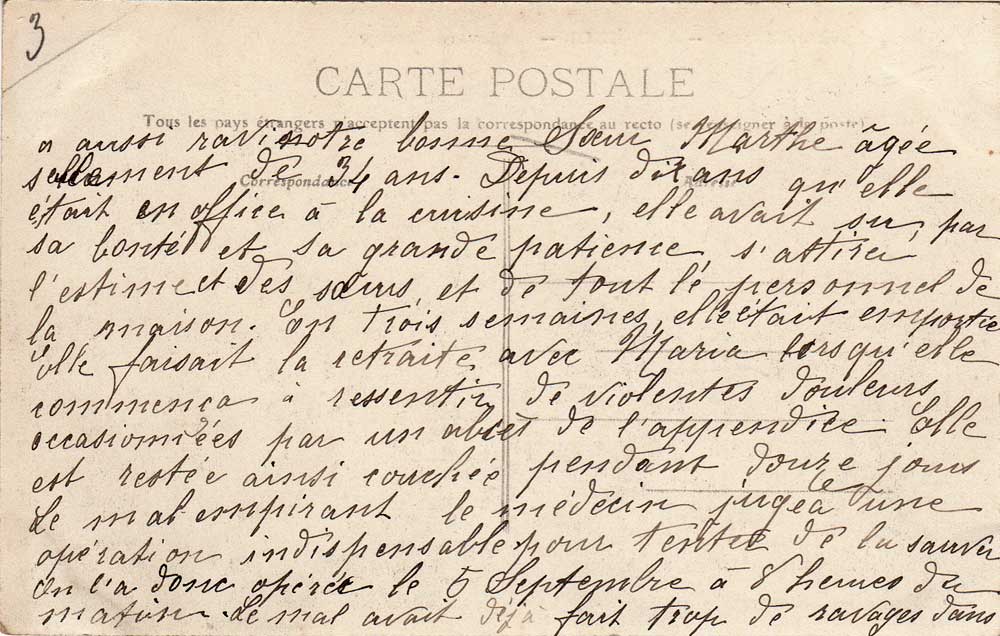 3
CARTE POSTALE
Tous les pays étrangers n'acceptent pas la correspondance au recto (se renseigner à la poste)
Correspondance
Adresse
a aussi ravi notre bonne Sœur Marthe âgée
seulement de 34 ans. Depuis dix ans qu'elle
était en office à la cuisine, elle avait su, par
sa bonté et sa grande patience s'attirer
l'estime et des sœurs et de tout le personnel de
la maison. En trois semaines, elle était emportée
Elle faisait la retraite avec Maria lorsqu'elle
commença à ressentir de violentes douleurs
occasionnées par un abcès de l'appendice. Elle
est restée ainsi couchée pendant douze jours
Le mal empirant le médecin jugea une
opération indispensable pour tenter de la sauver
On l'a donc opérée le 5 Septembre à 8 heures du
matin. Le mal avait déjà fait trop de ravages dans